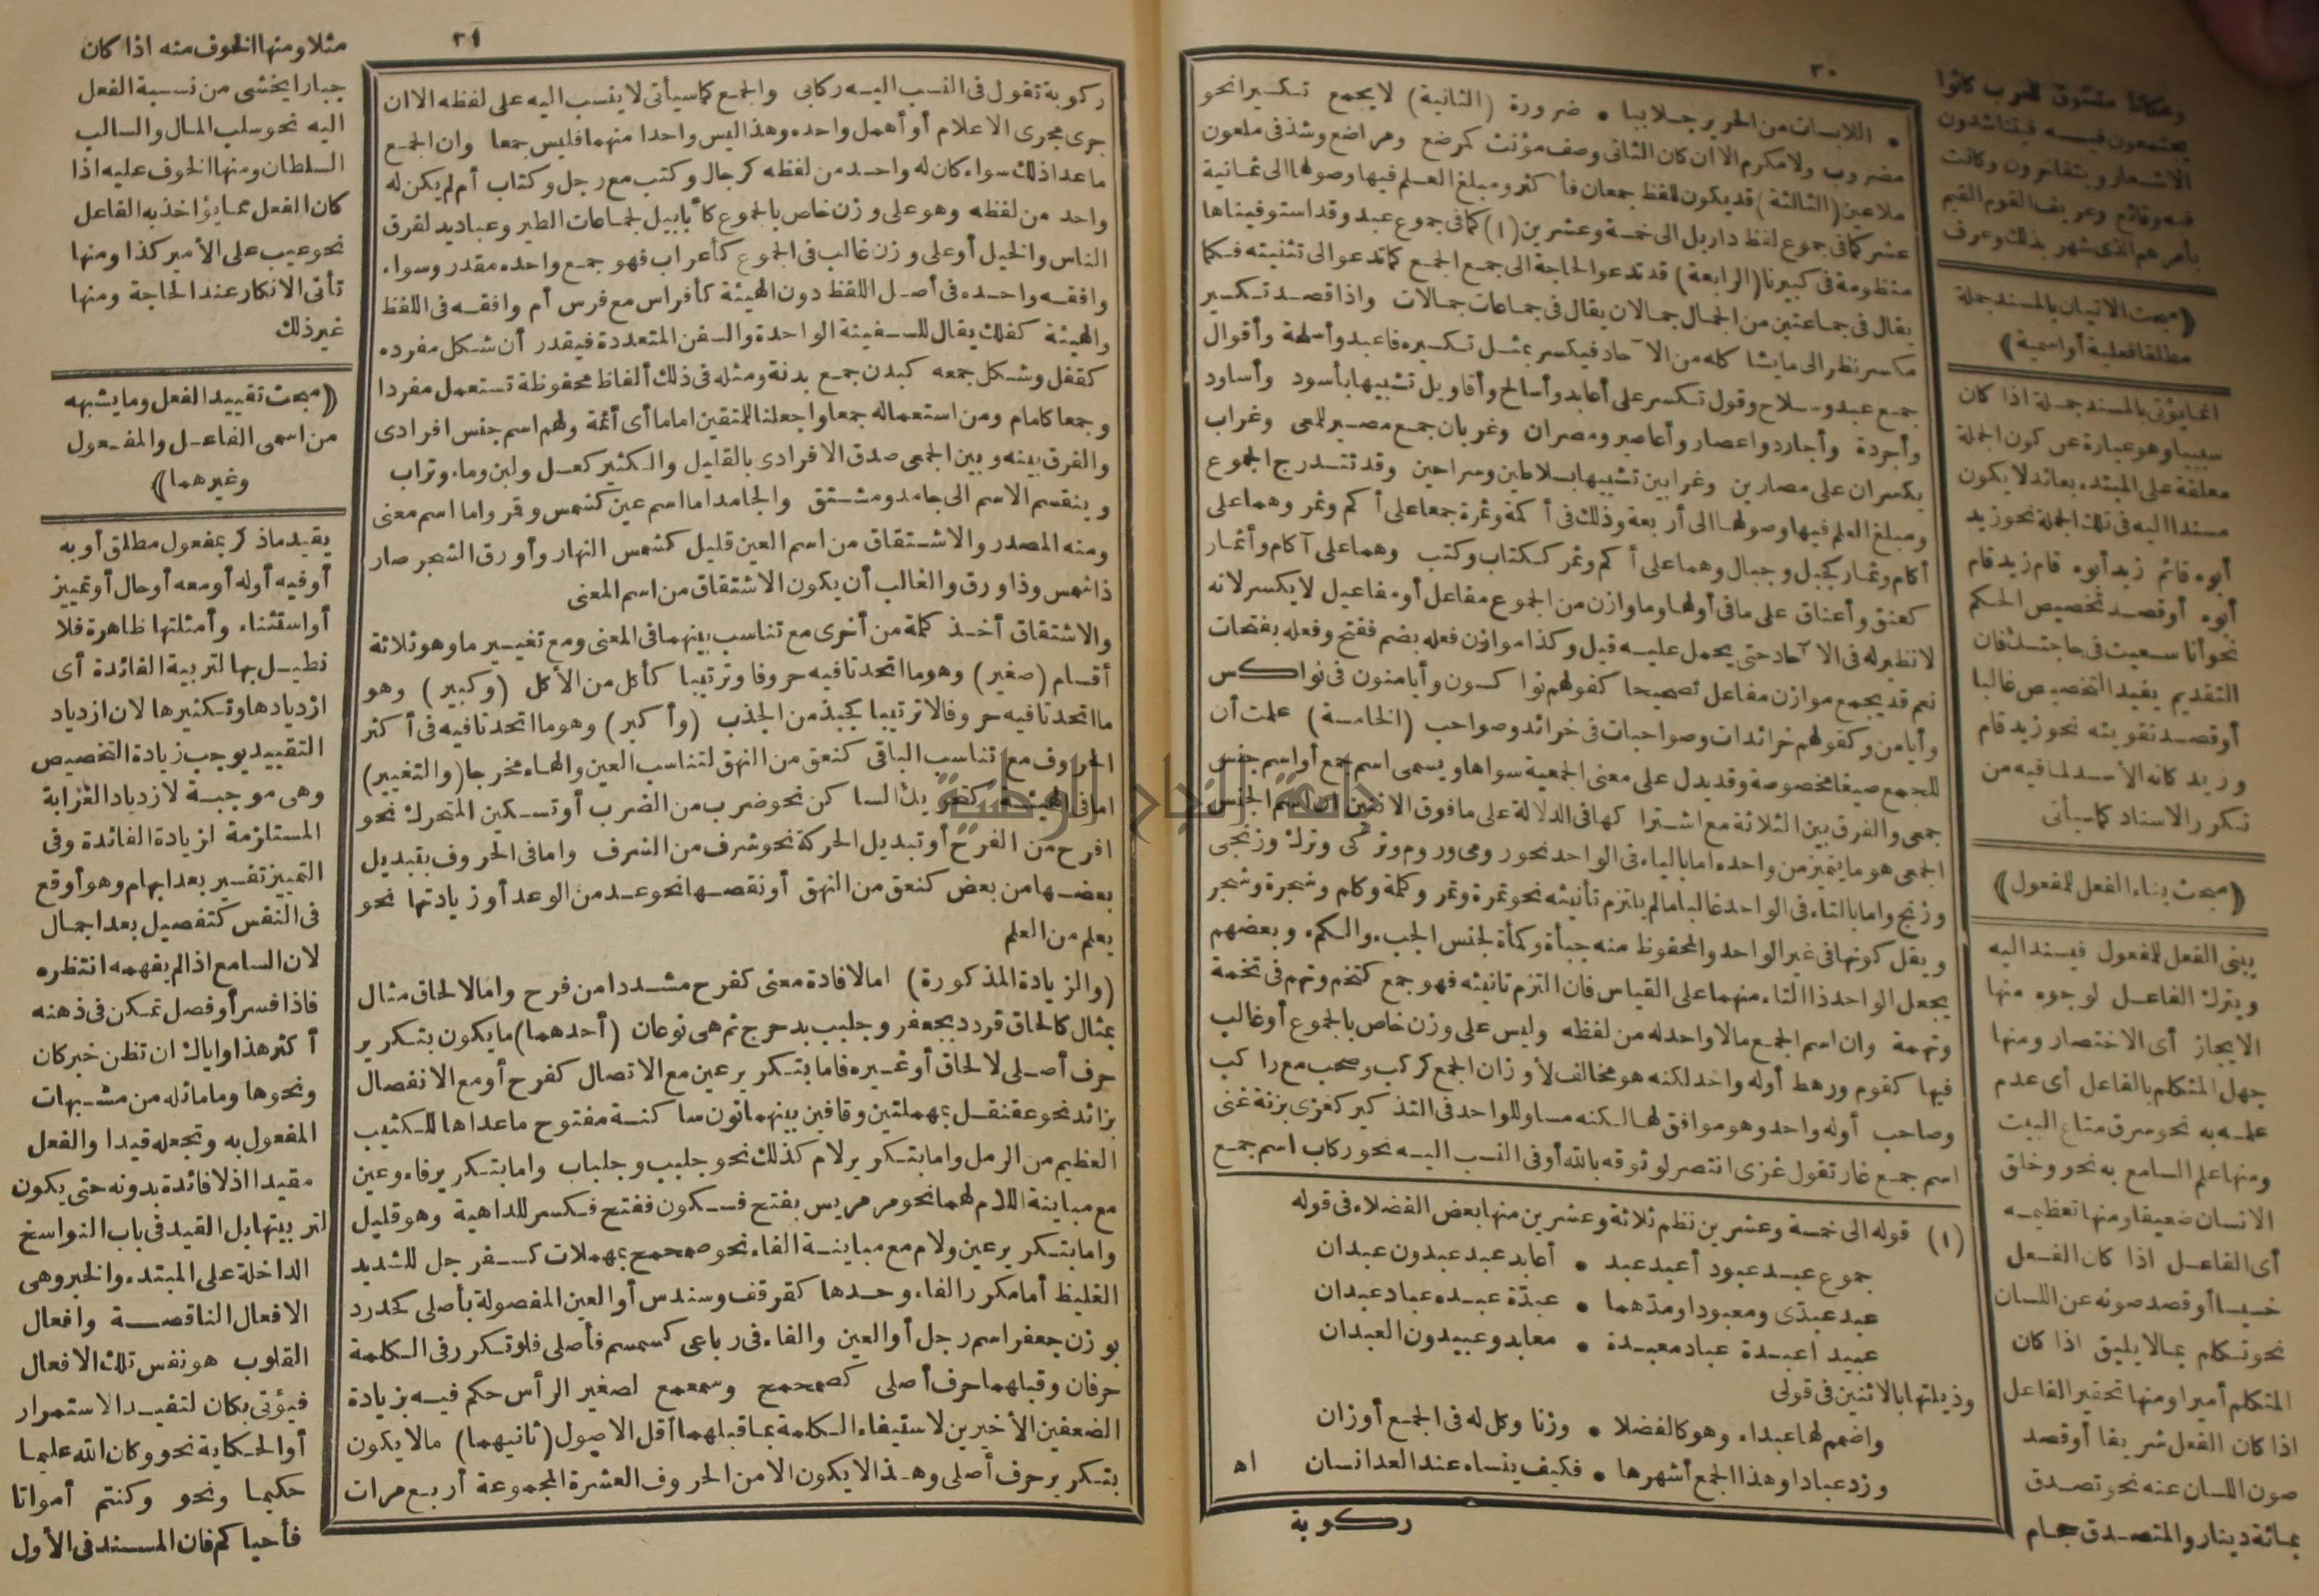 ٣٠
• اللابسات من الحرير جلاببا • ضرورة (الثانية) لا يجمع تكسيرا نحو
مضروب ولا مكرم الا ان كان الثانى وصف مؤنث كمرضع ومراضع وشذ فى ملعون
ملاعين (الثالثة) قد يكون للفظ جمعان فأكثر ومبلغ العلم فيها وصولها الى ثمانية
عشر كما فى جموع لفظ دار بل الى خمسة وعشرين (١) كما فى جموع عبد وقد استوفيناها
منظومة فى كبيرنا (الرابعة) قد تدعو الحاجة الى جمع الجمع كما تدعو الى تثنيته فكما
يقال فى جماعتين من الجمال جمالان يقال فى جماعات جمالات واذا قصد تكسير
مكسر نظر الى ما يشا كله من الآحاد فيكسر بمثل تكسيره فاعبد وأسلحة وأقوال
جمع عبد وسلاح وقول تكسر على أعابد وأسالح وأقاويل تشبيها بأسود وأساود
وأجردة وأجارد واعصار وأعاصير ومصران وغربان جمع مصير للمعى وغراب
يكسران على مصارين وغرابين تشبيها بسلاطين وسراحين وقد تتدرج الجموع
ومبلغ العلم فيها وصولها الى أربعة وذلك فى أكمة وثمرة جمعا على أكم وثمر وهما على
أكام وثمار كجبل وجبال وهما على أكم وثمر ككتاب وكتب وهما على آكام وأثمار
كعنق وأعناق على ما فى أولها وما وازن من الجموع مفاعل أو مفاعيل لا يكسر لانه
لا نظير له فى الآحاد حتى يحمل عليه قيل وكذا موازن فعله بضم ففتح وفعله بفتحات
نعم قد يجمع موازن مفاعل تصحيحا كقولهم نواكسون وأيامنون فى نواكس
وأيامن وكقولهم خرائدات وصواحبات فى خرائد وصواحب (الخامسة) علمت أن
للجمع صيغا مخصوصة وقد يدل على معنى الجمعية سواها ويسمى اسم جمع أو اسم جنس
جمعى والفرق بين الثلاثة مع اشتراكها فى الدلالة على ما فوق الاثنين ان اسم الجنس
الجمعى هو ما يتميز من واحده اما بالياء فى الواحد نحو روم ورومى وترك وتركى وزنجى
وزنج واما بالتاء فى الواحد غالبا ما لم يلتزم تأنيثه نحو تمرة وتمر وكلمة وكلم وشجرة وشجر
ويقل كونها فى غير الواحد والمحفوظ منه جبأة وكمأة لجنس الجبء والكمء وبعضهم
يجعل الواحد ذا التاء منهما على القياس فان التزم تانيثه فهو جمع كتخم وتهم فى تخمة
وتهمة وان اسم الجمع ما لا واحد له من لفظه وليس على وزن خاص بالجموع أو غالب
فيها كقوم ورهط أو له واحد لكنه هو مخالف لأوزان الجمع كركب وصحب مع راكب
وصاحب أو له واحد وهو موافق لها لكنه مساو للواحد فى التذكير كغزى بزنة غنى
اسم جمع غاز تقول غزى انتصر لوثوقه بالله أو فى النسب اليه نحو ركاب اسم جمع
(١) قوله الى خمسة وعشرين نظم ثلاثة وعشرين منها بعض الفضلاء فى قوله
جموع عبد عبود أعبد عبد • أعابد عبد عبدون عبدان
عبد عبدّى ومعبودا ومدّهما • عبدّة عبده عباد عبدان
عبيد اعبدة عباد معبدة • معابد وعبيدون العبدان
وذيلتها بالاثنين فى قولى
واضمم لها عبداء وهو كالفضلا • وزنا وكل له فى الجمع أوزان
وزد عبادا وهذا الجمع أشهرها • فكيف ينساه عند العد انسان اه
ركوبة
وعكاظ سوق للعرب كانوا
يجتمعون فيه فيتناشدون
الاشعار ويتفاخرون وكانت
فيه وقائع وعريف القوم القيم
بأمرهم الذى شهر بذلك وعرف
(مبحث الاتيان بالمسند جملة
مطلقا فعلية أو اسمية)
انما يؤتى بالمسند جملة اذا كان
سببيا وهو عبارة عن كون الجملة
معلقة على المبتدء بعائد لا يكون
مسندا اليه فى تلك الجملة نحو زيد
أبوه قائم زيد أبوه قام زيد قام
أبوه أو قصد تخصيص الحكم
نحو أنا سعيت فى حاجتك فان
التقديم يفيد التخصيص غالبا
أو قصد تقويته نحو زيد قام
وزيد كانه الأسد لما فيه من
تكرر الاسناد كما سيأتى
(مبحث بناء الفعل للمفعول)
يبنى الفعل للمفعول فيسند اليه
ويترك الفاعل لوجوه منها
الايجاز أى الاختصار ومنها
جهل المتكلم بالفاعل أى عدم
علمه به نحو سرق متاع البيت
ومنها علم السامع به نحو وخلق
الانسان ضعيفا ومنها تعظيمه
أى الفاعل اذا كان الفعل
خسيسا أو قصد صونه عن اللسان
نحو تكلم بما لا يليق اذا كان
المتكلم أميرا ومنها تحقير الفاعل
اذا كان الفعل شريفا أو قصد
صون اللسان عنه نحو تصدق
بمائة دينار والمتصدق حجام
٣١
ركوبة تقول فى النسب اليه ركابى والجمع كما سيأتى لا ينسب اليه على لفظه الا ان
جرى مجرى الاعلام أو أهمل واحده وهذا ليس واحدا منهما فليس جمعا وان الجمع
ما عدا ذلك سواء كان له واحد من لفظه كرجال وكتب مع رجل وكتاب أم لم يكن له
واحد من لفظه وهو على وزن خاص بالجموع كأبابيل لجماعات الطير وعباديد لفرق
الناس والخيل أو على وزن غالب فى الجموع كأعراب فهو جمع واحده مقدر وسواء
وافقه واحده فى أصل اللفظ دون الهيئة كأفراس مع فرس أم وافقه فى اللفظ
والهيئة كفلك يقال للسفينة الواحدة والسفن المتعددة فيقدر أن شكل مفرده
كقفل وشكل جمعه كبدن جمع بدنة ومثله فى ذلك ألفاظ محفوظة تستعمل مفردا
وجمعا كامام ومن استعماله جمعا واجعلنا للمتقين اماما أى أئمة ولهم اسم جنس افرادى
والفرق بينه وبين الجمعى صدق الافرادى بالقليل والكثير كعسل ولبن وماء وتراب
وينقسم الاسم الى جامد ومشتق والجامد اما اسم عين كشمس وقمر واما اسم معنى
ومنه المصدر والاشتقاق من اسم العين قليل كشمس النهار وأورق الشجر صار
ذا شمس وذا ورق والغالب أن يكون الاشتقاق من اسم المعنى
والاشتقاق أخذ كلمة من أخرى مع تناسب بينهما فى المعنى ومع تغيير ما وهو ثلاثة
أقسام (صغير) وهو ما اتحدتا فيه حروفا وترتيبا كأكل من الأكل (وكبير) وهو
ما اتحدتا فيه حروفا لا ترتيبا كجبذ من الجذب (وأكبر) وهو ما اتحدتا فيه فى أكثر
الحروف مع تناسب الباقى كنعق من النهق لتناسب العين والهاء مخرجا (والتغيير)
اما فى الهيئة كتحريك الساكن نحو ضرب من الضرب أو تسكين المتحرك نحو
افرح من الفرح أو تبديل الحركة نحو شرف من الشرف واما فى الحروف بتبديل
بعضها من بعض كنعق من النهق أو نقصها نحو عد من الوعد أو زيادتها نحو
يعلم من العلم
(والزيادة المذكورة) اما لافادة معنى كفرح مشددا من فرح واما لالحاق مثال
بمثال كالحاق قردد بجعفر وجلبب بدحرج ثم هى نوعان (أحدهما) ما يكون بتكرير
حرف أصلى لالحاق أو غيره فاما بتكرير عين مع الاتصال كفرح أو مع الانفصال
بزائد نحو عقنقل بمهملتين وقافين بينهما نون ساكنة مفتوح ما عداها للكثيب
العظيم من الرمل واما بتكرير لام كذلك نحو جلبب وجلباب واما بتكرير فاء وعين
مع مباينة اللام لهما نحو مرمريس بفتح فسكون ففتح فكسر للداهية وهو قليل
واما بتكرير عين ولام مع مباينة الفاء نحو صمحمح بمهملات كسفرجل للشديد
الغليظ أما مكرر الفاء وحدها كقرقف وسندس أو العين المفصولة بأصلى كحدرد
بوزن جعفر اسم رجل أو العين والفاء فى رباعى كسمسم فأصلى فلو تكرر فى الكلمة
حرفان وقبلهما حرف أصلى كصمحمح وسمعمع لصغير الرأس حكم فيه بزيادة
الضعفين الأخيرين لاستيفاء الكلمة بما قبلهما أقل الاصول (ثانيهما) ما لا يكون
بتكرير حرف أصلى وهذا لا يكون الا من الحروف العشرة المجموعة أربع مرات
مثلا ومنها الخوف منه اذا كان
جبارا يخشى من نسبة الفعل
اليه نحو سلب المال والسالب
السلطان ومنها الخوف عليه اذا
كان الفعل مما يؤاخذ به الفاعل
نحو عيب على الأمير كذا ومنها
تأتى الانكار عند الحاجة ومنها
غير ذلك
(مبحث تقييد الفعل وما يشبهه
من اسمى الفاعل والمفعول
وغيرهما)
يقيد ما ذكر بمفعول مطلق أو به
أو فيه أو له أو معه أو حال أو تمييز
أو استثناء وأمثلتها ظاهرة فلا
نطيل بها لتربية الفائدة أى
ازديادها وتكثيرها لان ازدياد
التقييد يوجب زيادة التخصيص
وهى موجبة لازدياد الغرابة
المستلزمة لزيادة الفائدة وفى
التمييز تفسير بعد ابهام وهو أوقع
فى النفس كتفصيل بعد اجمال
لان السامع اذا لم يفهمه انتظره
فاذا فسر أو فصل تمكن فى ذهنه
أكثر هذا واياك ان تظن خبر كان
ونحوها وما ماثله من مشبهات
المفعول به وتجعله قيدا والفعل
مقيدا اذ لا فائدة بدونه حتى يكون
لتربيتها بل القيد فى باب النواسخ
الداخلة على المبتدء والخبر وهى
الافعال الناقصة وافعال
القلوب هو نفس تلك الافعال
فيؤتى بكان لتفيد الاستمرار
أو الحكاية نحو وكان الله عليما
حكيما ونحو وكنتم أمواتا
فأحياكم فان المسند فى الأول
جامعة النجاح الوطنية